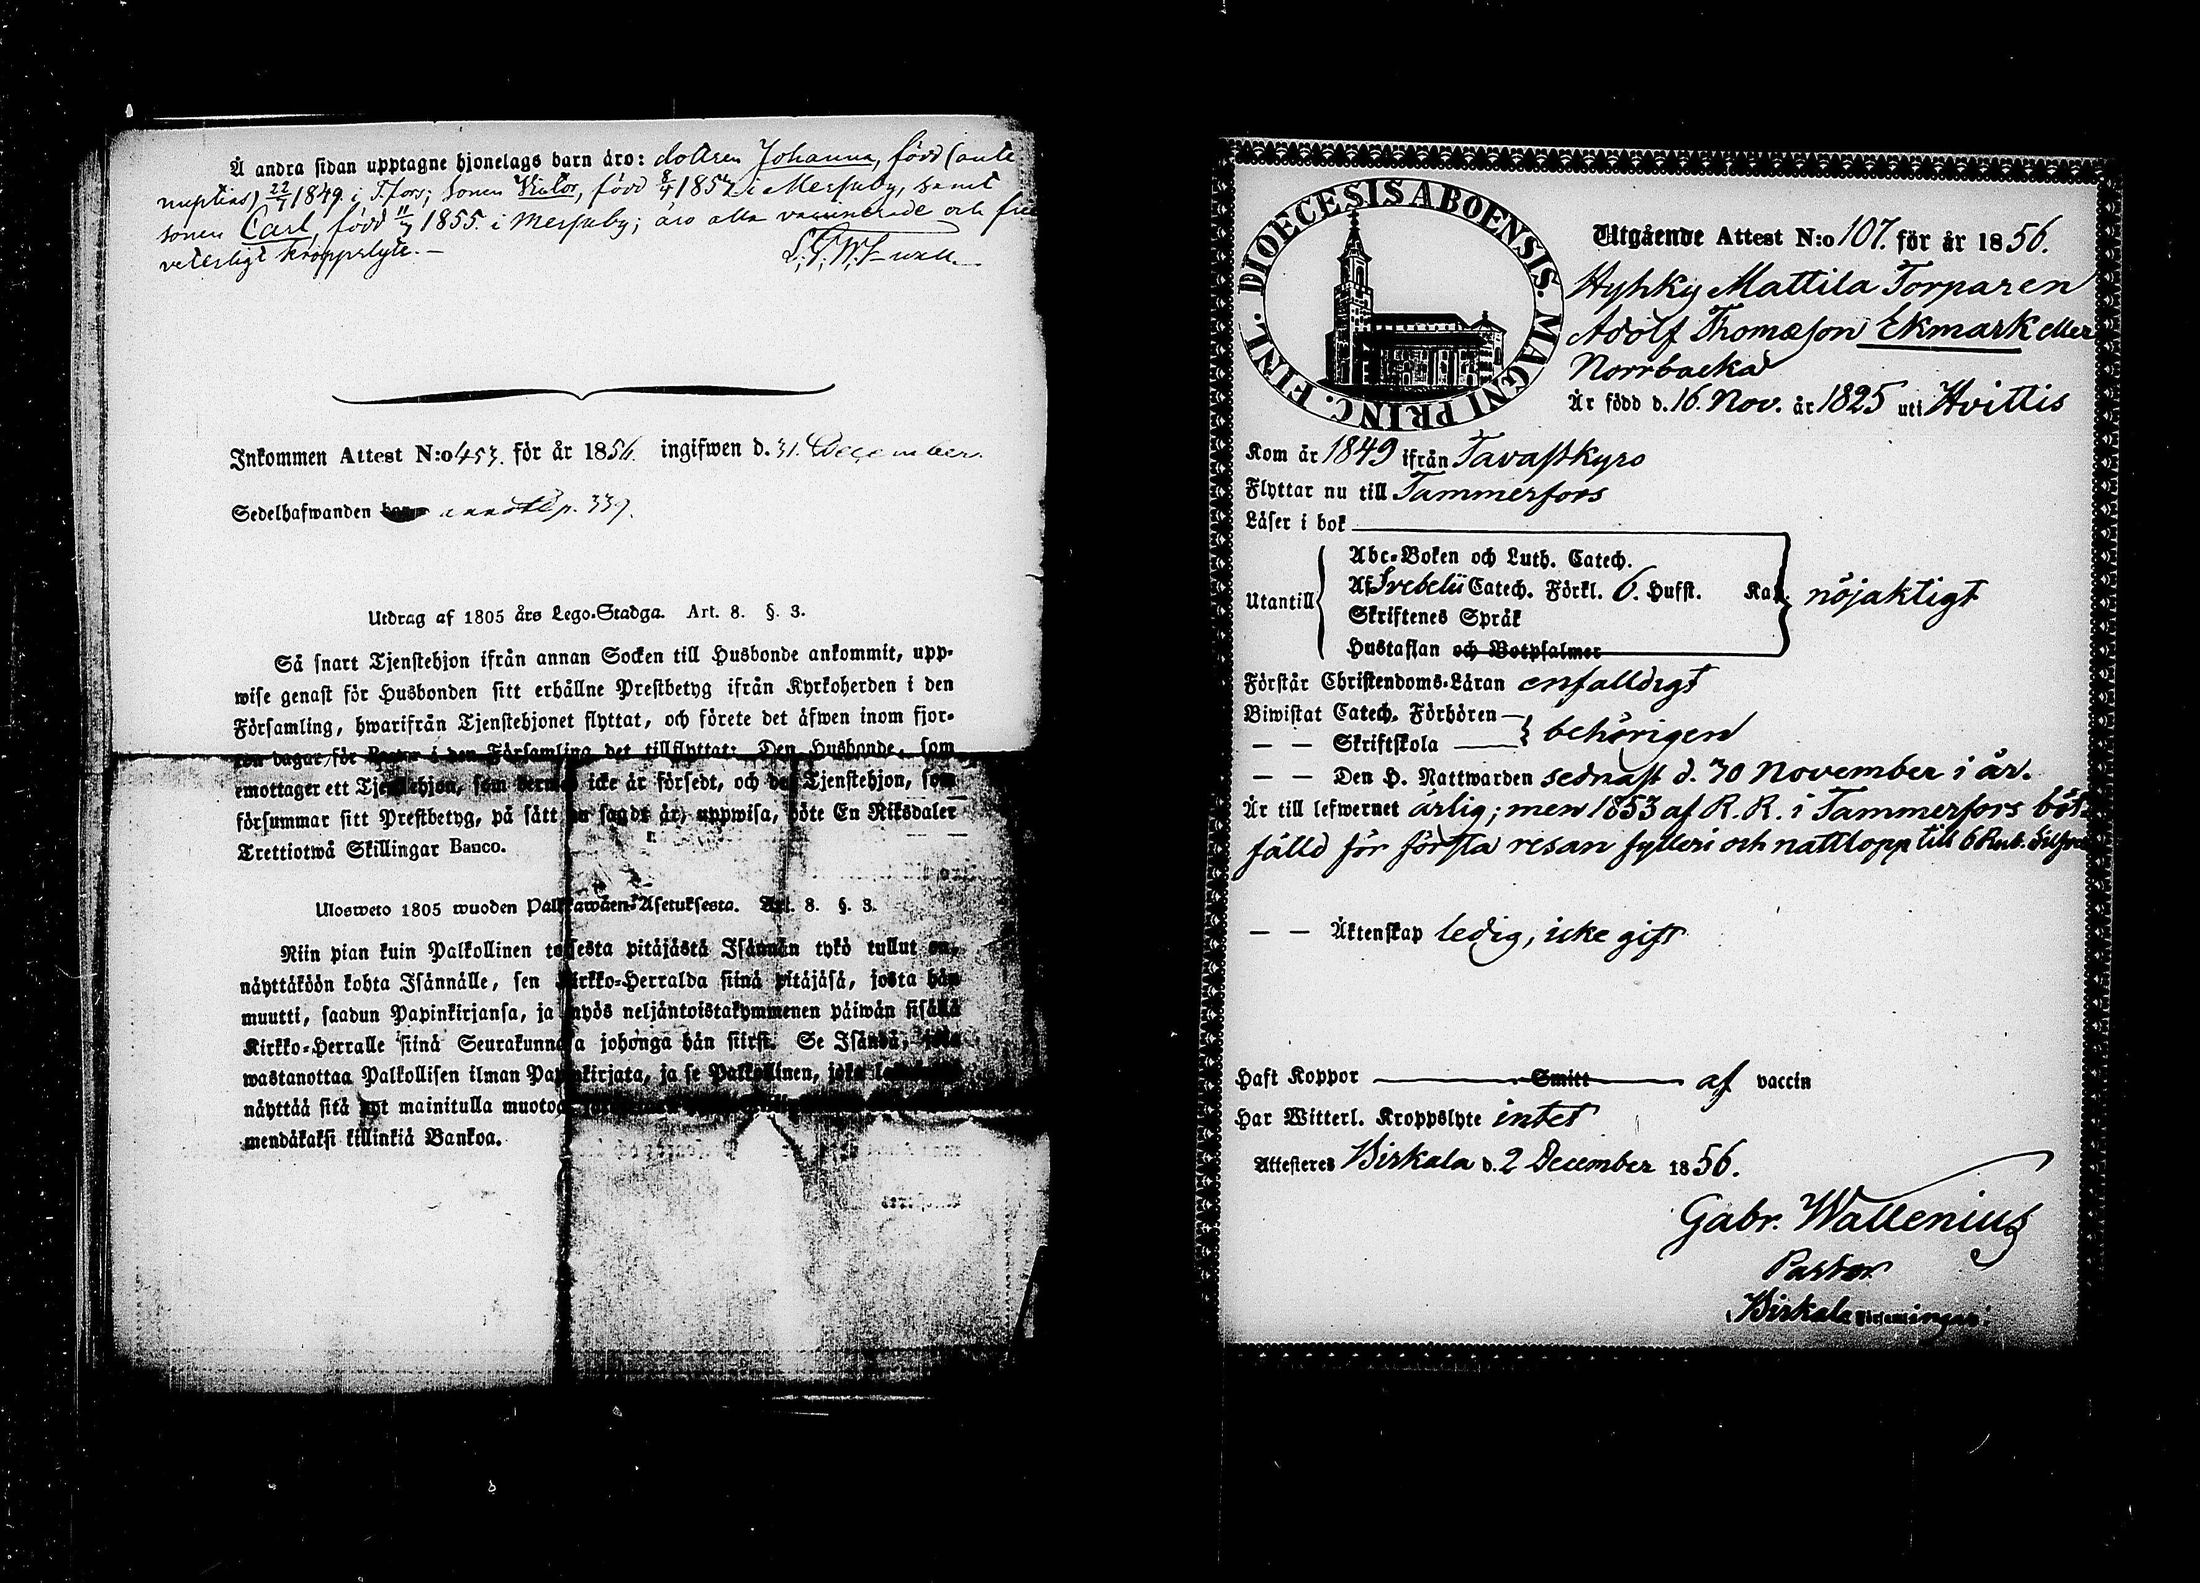 Å andra sidan upptagne hjonelags barn äro: dottren Johanna, född (ante
nuptias) 22/1 1849 i T.fors; sonen Victor, född 8/4 1852 i Messuby, samt
sonen Carl, född 11/7 1855 i Messuby; äro alla vaccinerade och från
veterligt kroppslyte. —
Inkommen Attest N:o 453. för år 1856. ingifwen d. 31. December.
Sedelhafwanden annot. p. 339.
Utdrag af 1805 års Lego-Stadga. Art. 8. §. 3.
Så snart Tjenstehjon ifrån annan Socken till Husbonde ankommit, upp-
wise genast för Husbonden sitt erhållne Prestbetyg ifrån Kyrkoherden i den
Församling, hwarifrån Tjenstehjonet flyttat, och förete det äfwen inom fjor-
ton dagar för Pastor i den Församling det tillflyttat: Den Husbonde, som
emottager ett Tjenstehjon, som dermed icke är försedt, och det Tjenstehjon, som
försummar sitt Prestbetyg, på sätt nu sagdt är, uppwisa, böte En Riksdaler
Trettiotwå Skillingar Banco.
Ulosweto 1805 wuoden Palkkawäen-Asetuksesta. Art. 8. §. 3.
Niin pian kuin Palkollinen toisesta pitäjästä Isännän tykö tullut on,
näyttäköön kohta Isännälle, sen Kirkko-Herralda siinä pitäjäsä, josta hän
muutti, saadun Papinkirjansa, ja myös neljäntoistakymmenen päiwän sisällä
Kirkko-Herralle siinä Seurakunnasa johonga hän siirsi. Se Isändä, joka
wastanottaa Palkollisen ilman Papinkirjata, ja se Palkollinen, joka
näyttää sitä nyt mainitulla muotoa
mendäkaksi killinkiä Bankoa.
DIOECESIS ABOENSIS. MAGNI PRINC. FINL.
Utgående Attest N:o 107. för år 1856.
Hyhky Mattila Torparen
Adolf Thomæson Ekmark eller
Norrbacka
Är född d. 16. Nov. år 1825 uti Hvittis
Kom år 1849 ifrån Tavastkyro
Flyttar nu till Tammerfors
Läser i bok
Abc-Boken och Luth. Catech.
Utantill Af Svebelii Catech. Förkl. 6. Hufst. Kap. nöjaktigt
Skriftenes Språk
Hustaflan och Botpsalmer
Förstår Christendoms-Läran enfalldigt
Biwistat Catech. Förhören
— — Skriftskola behörigen
— — Den H. Nattwarden sednast d. 30 November i år.
Är till lefwernet ärlig; men 1853 af R. R. i Tammerfors böt-
fälld för första resan fylleri och nattlopp till 6 Rub. Silfver
— — Äktenskap ledig, icke gift
Haft Koppor Smitt af vaccin
Har Witterl. Kroppslyte intet
Attesteres Birkala d. 2 December 1856.
Gabr. Wallenius
Pastor
Birkala